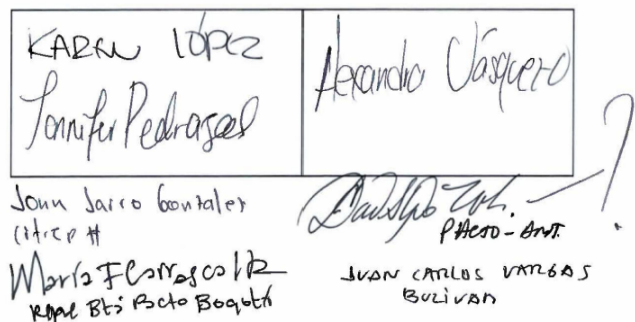 KAREN LÓPEZ
Jennifer Pedraza
Alexandra Vásquez
John Jairo González
citrep #
María F Carrascal R
Repe Bta Pacto Bogotá
PACTO-ANT.
?
JUAN CARLOS VARGAS
BOLIVAR